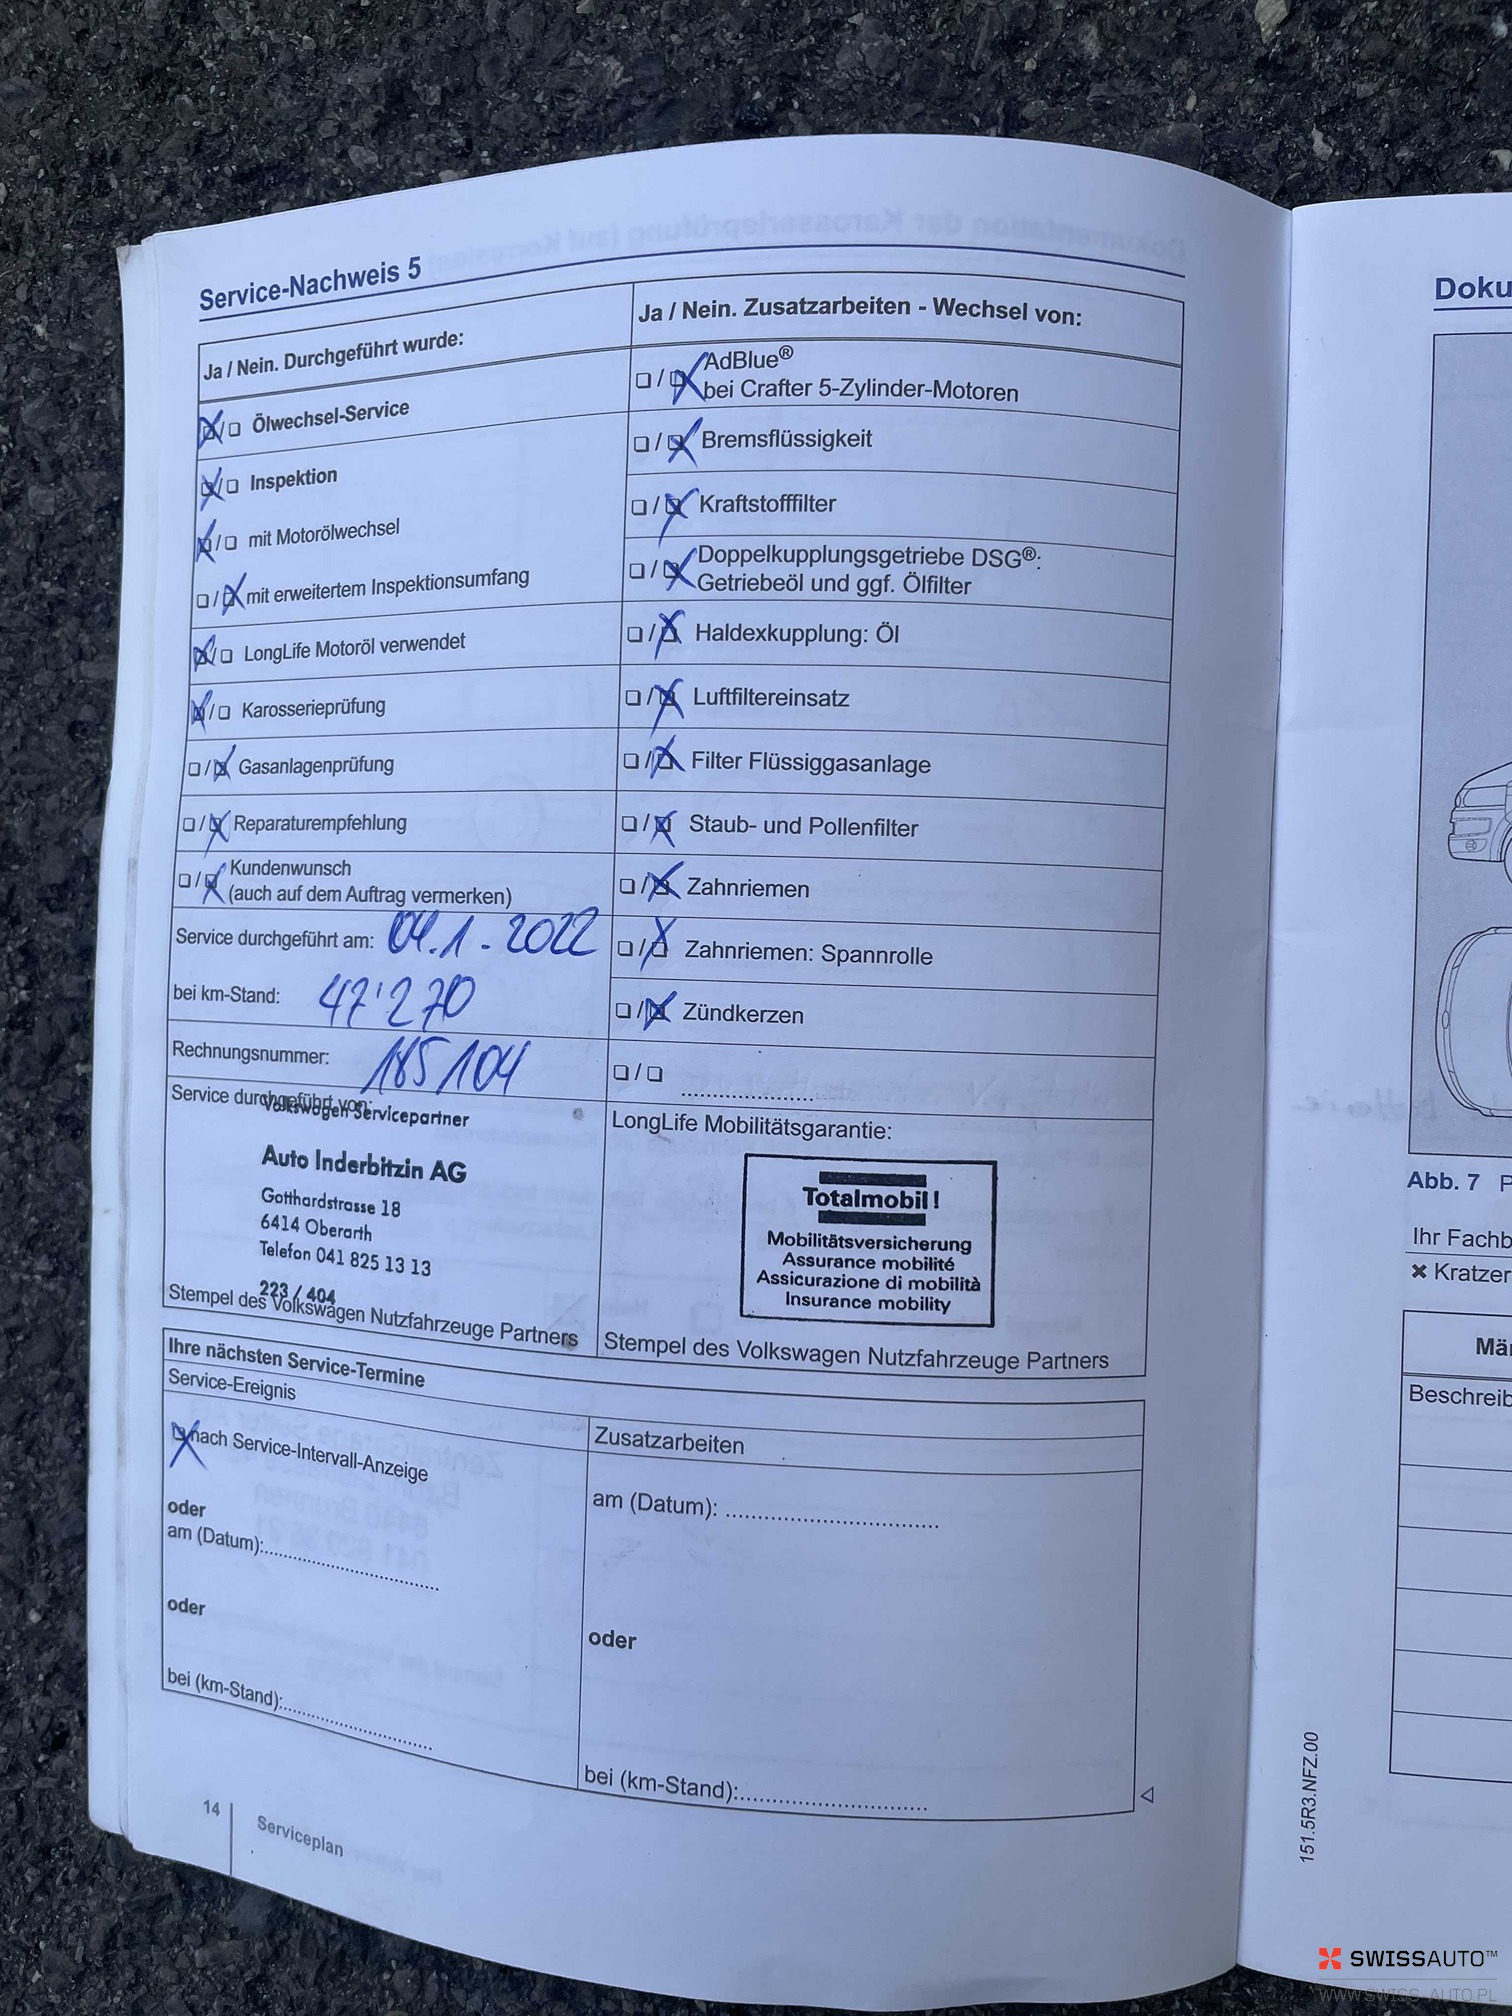 Service-Nachweis 5
Ja / Nein. Durchgeführt wurde:
❏/❏ Ölwechsel-Service
❏/❏ Inspektion
❏/❏ mit Motorölwechsel
❏/❏ mit erweitertem Inspektionsumfang
❏/❏ LongLife Motoröl verwendet
❏/❏ Karosserieprüfung
❏/❏ Gasanlagenprüfung
❏/❏ Reparaturempfehlung
❏/❏ Kundenwunsch
(auch auf dem Auftrag vermerken)
Service durchgeführt am: 04.1.2022
bei km-Stand: 47'270
Rechnungsnummer: 185104
Service durchgeführt von:
Volkswagen Servicepartner
Auto Inderbitzin AG
Gotthardstrasse 18
6414 Oberarth
Telefon 041 825 13 13
223 / 404
Stempel des Volkswagen Nutzfahrzeuge Partners
Ja / Nein. Zusatzarbeiten - Wechsel von:
❏/❏ AdBlue®
bei Crafter 5-Zylinder-Motoren
❏/❏ Bremsflüssigkeit
❏/❏ Kraftstofffilter
❏/❏ Doppelkupplungsgetriebe DSG®:
Getriebeöl und ggf. Ölfilter
❏/❏ Haldexkupplung: Öl
❏/❏ Luftfiltereinsatz
❏/❏ Filter Flüssiggasanlage
❏/❏ Staub- und Pollenfilter
❏/❏ Zahnriemen
❏/❏ Zahnriemen: Spannrolle
❏/❏ Zündkerzen
❏/❏ ....................
LongLife Mobilitätsgarantie:
Totalmobil!
Mobilitätsversicherung
Assurance mobilité
Assicurazione di mobilità
Insurance mobility
Stempel des Volkswagen Nutzfahrzeuge Partners
Ihre nächsten Service-Termine
Service-Ereignis
❏ nach Service-Intervall-Anzeige
oder
am (Datum):..............................
oder
bei (km-Stand):..........................
Zusatzarbeiten
am (Datum): ..................................
oder
bei (km-Stand):..............................
14
Serviceplan
Doku
Abb. 7 P
Ihr Fachb
✖ Kratzer
Mä
Beschreib
151.5R3.NFZ.00
SWISSAUTO™
WWW.SWISS-AUTO.PL